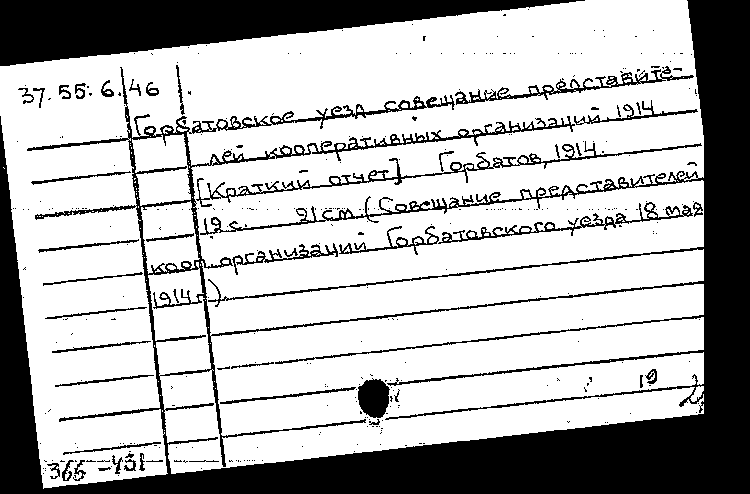 37.55:6.46
Горбатовское уезд совещание представите-
лей кооперативных организаций. 1914.
[Краткий отчет] Горбатов, 1914.
19 с. 21 см. (Совещание представителей
кооп. организаций Горбатовского уезда 18 мая
1914 г.).
19
366-431